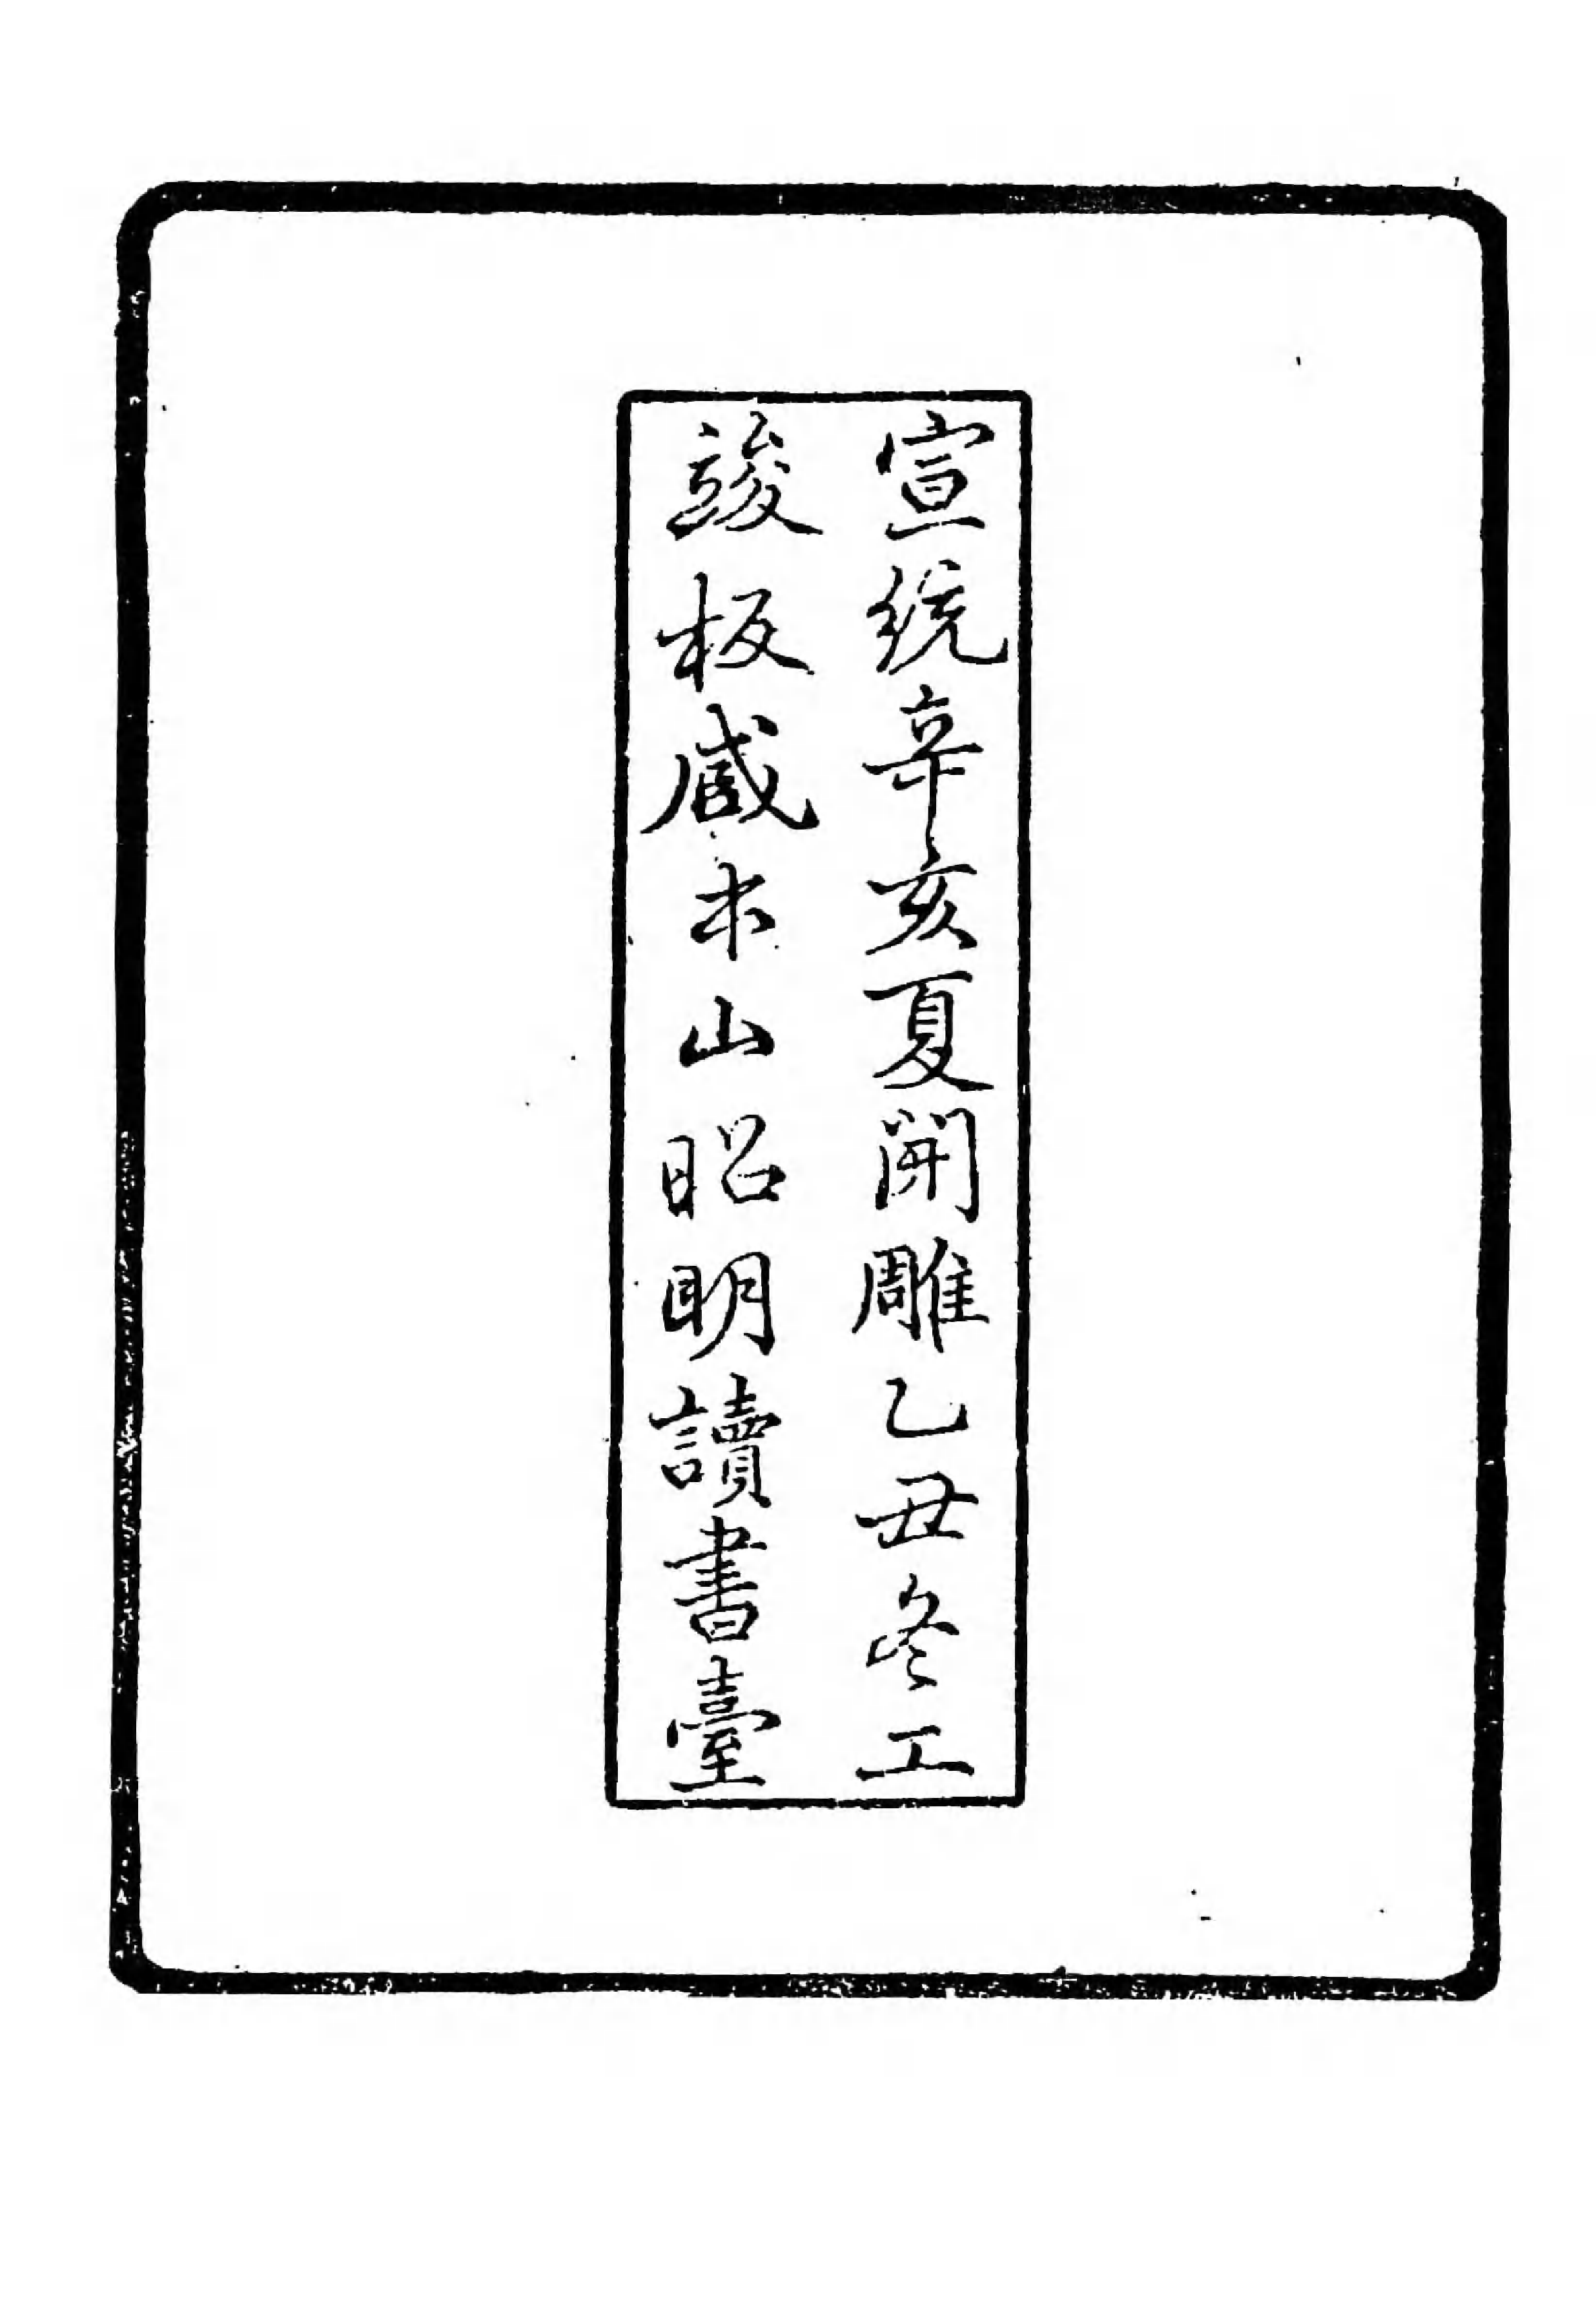 宣統辛亥夏開雕乙丑冬工
竣板臧本山昭明讀書臺